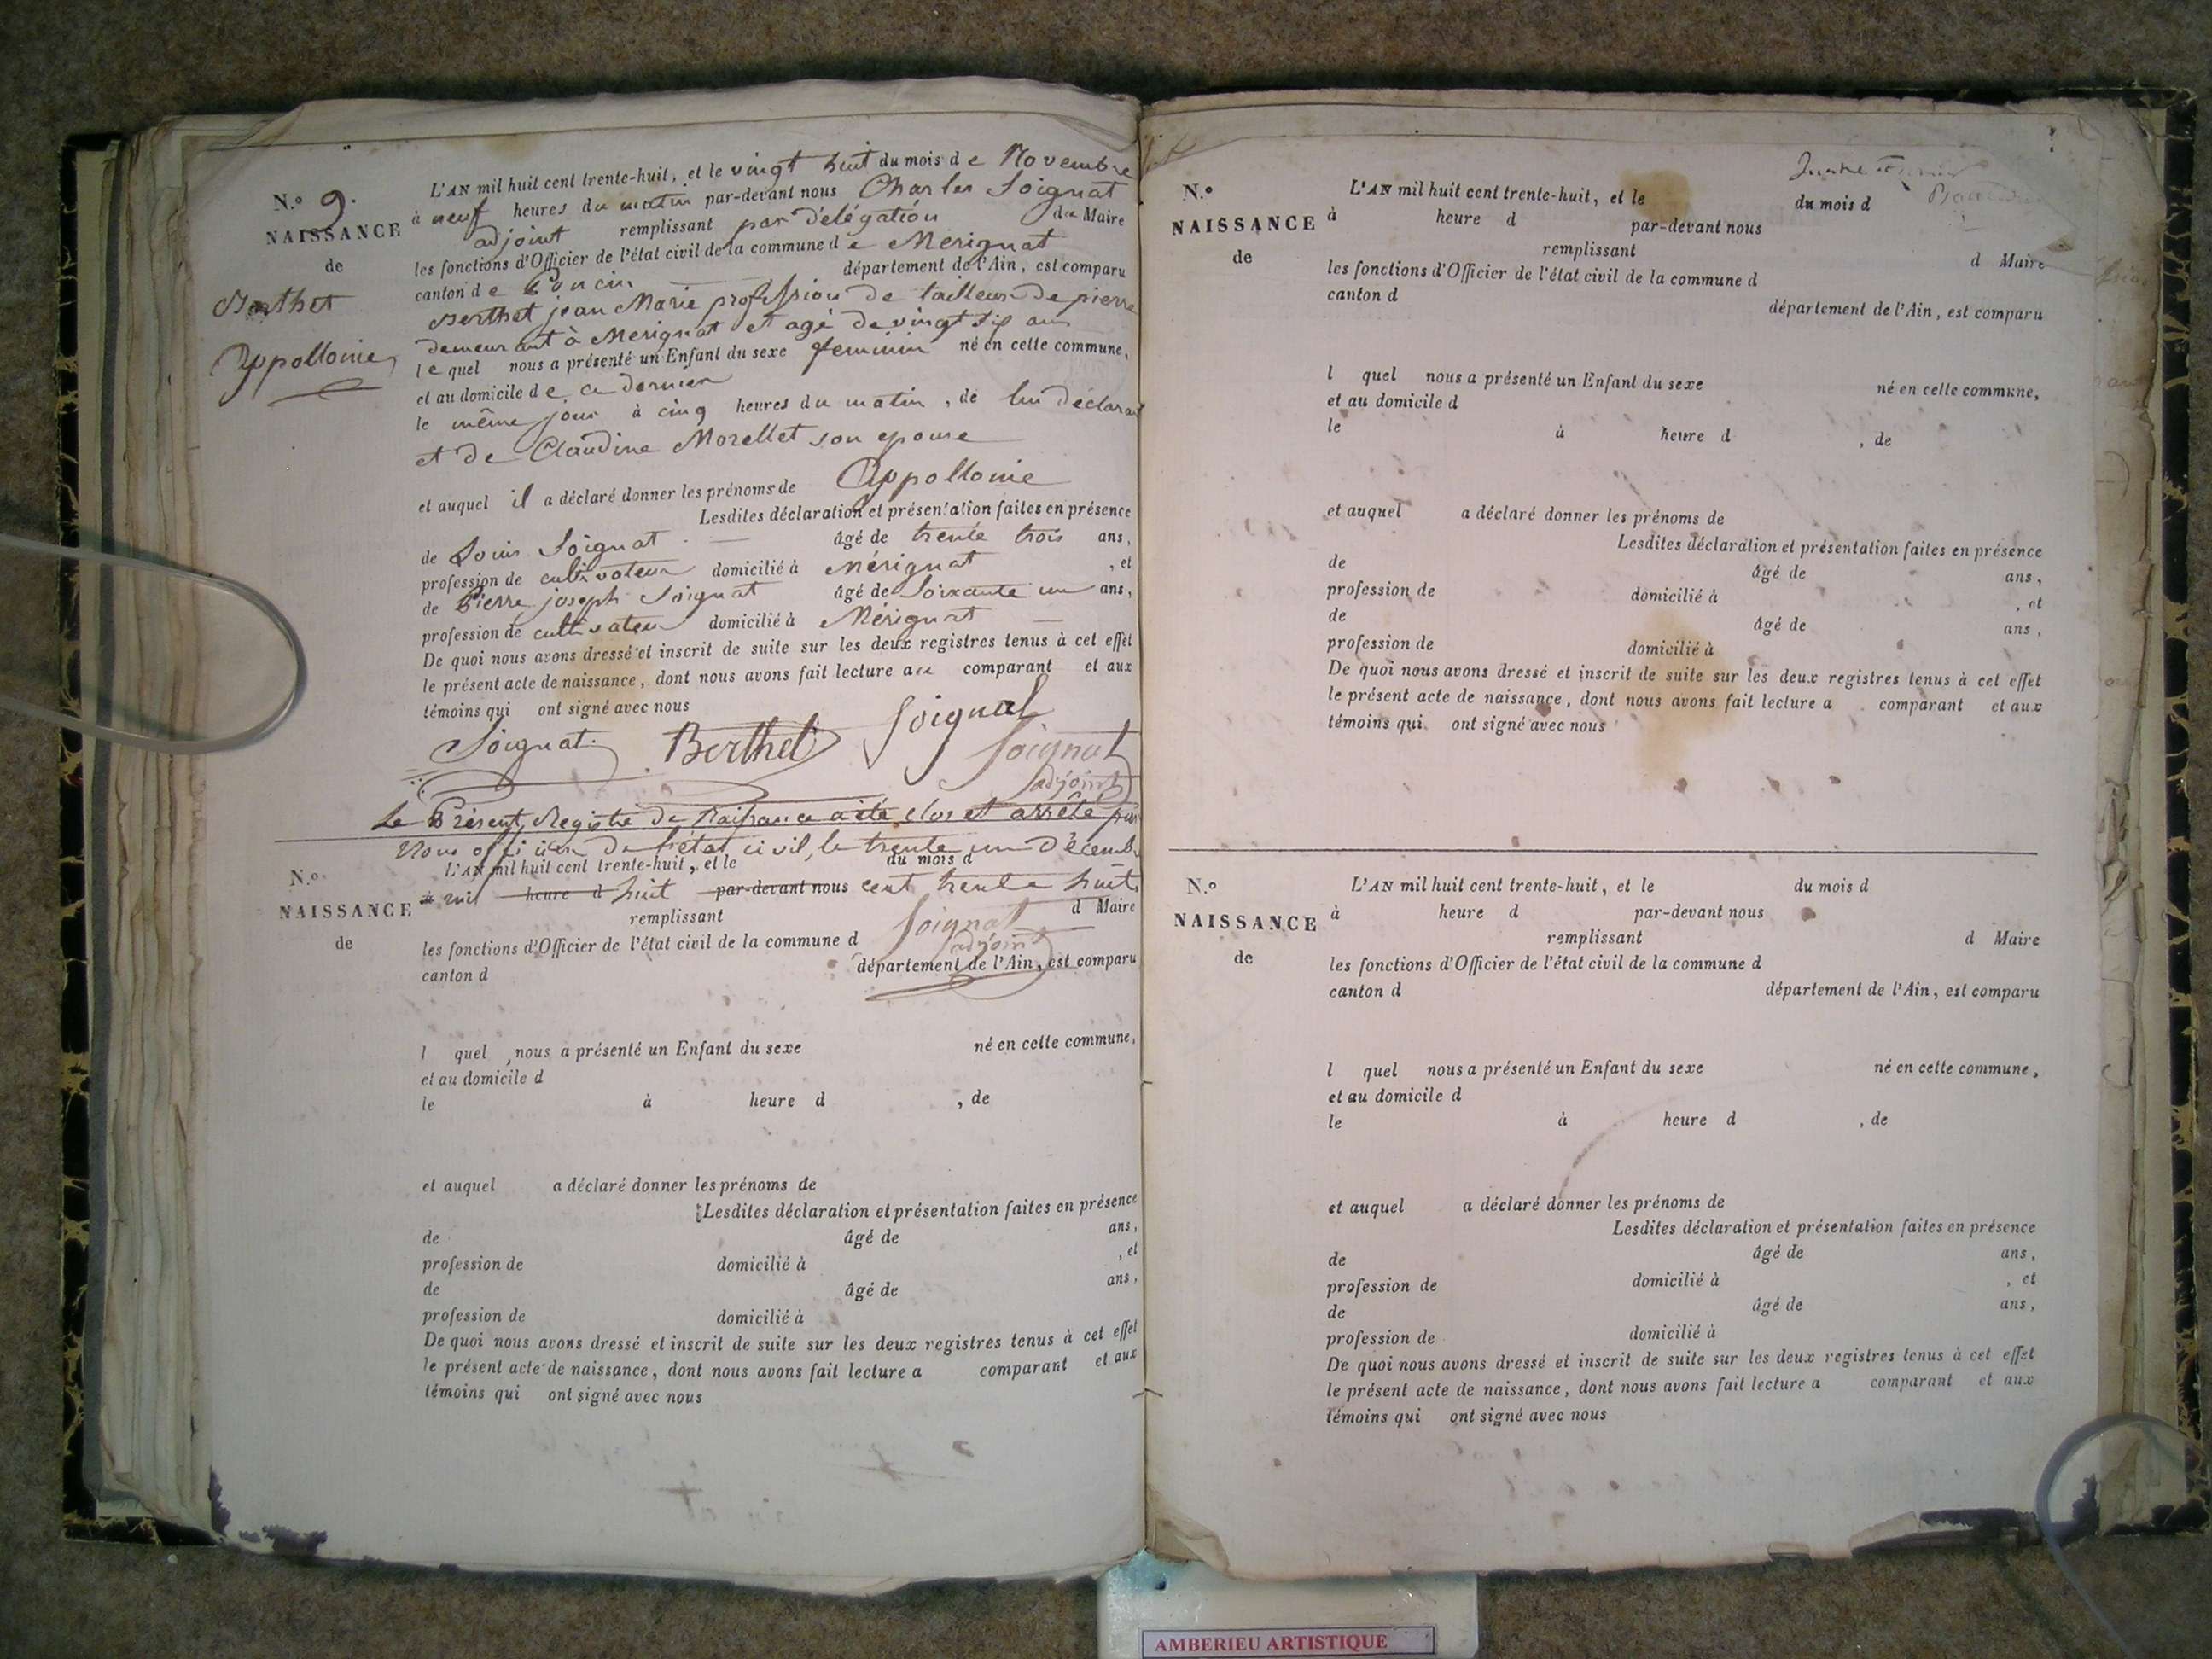 N.o 9.
NAISSANCE
de
Berthet
Appollonie
L'AN mil huit cent trente-huit, et le vingt huit du mois de Novembre
à neuf heures du matin par-devant nous Charles Soignat
adjoint remplissant par délégation du Maire
les fonctions d'Officier de l'état civil de la commune de Merignat
canton de Poncin département de l'Ain, est comparu
Berthet jean Marie profession de tailleur de pierre
demeurant à Merignat et agé de vingt six ans
lequel nous a présenté un Enfant du sexe feminin né en cette commune,
et au domicile de ce dernier
le même jour à cinq heures du matin, de lui déclarant
et de Claudine Morellet son epouse
et auquel il a déclaré donner les prénoms de Appollonie
Lesdites déclaration et présentation faites en présence
de Louis Soignat âgé de trente trois ans,
profession de cultivateur domicilié à Mérignat, et
de Pierre joseph Soignat âgé de Soixante un ans,
profession de cultivateur domicilié à Mérignat
De quoi nous avons dressé et inscrit de suite sur les deux registres tenus à cet effet
le présent acte de naissance, dont nous avons fait lecture au comparant et aux
témoins qui ont signé avec nous
Soignat Berthet Soignat
Soignat
adjoint
Le Présent Registre de Naissance a été clos et arrêté par
Nous officier de l'état civil, le trente un Décembre
N.o
NAISSANCE
de
L'AN mil huit cent trente-huit, et le du mois d
à mil heure d huit par-devant nous cent trente huit
remplissant d Maire
Soignat
adjoint
les fonctions d'Officier de l'état civil de la commune d
canton d département de l'Ain, est comparu
l quel nous a présenté un Enfant du sexe né en cette commune,
et au domicile d
le à heure d , de
et auquel a déclaré donner les prénoms de
Lesdites déclaration et présentation faites en présence
de âgé de ans,
profession de domicilié à , et
de âgé de ans,
profession de domicilié à
De quoi nous avons dressé et inscrit de suite sur les deux registres tenus à cet effet
le présent acte de naissance, dont nous avons fait lecture a comparant et aux
témoins qui ont signé avec nous
N.o
NAISSANCE
de
L'AN mil huit cent trente-huit, et le du mois d
à heure d par-devant nous
remplissant d Maire
les fonctions d'Officier de l'état civil de la commune d
canton d département de l'Ain, est comparu
l quel nous a présenté un Enfant du sexe né en cette commune,
et au domicile d
le à heure d , de
et auquel a déclaré donner les prénoms de
Lesdites déclaration et présentation faites en présence
de âgé de ans,
profession de domicilié à , et
de âgé de ans,
profession de domicilié à
De quoi nous avons dressé et inscrit de suite sur les deux registres tenus à cet effet
le présent acte de naissance, dont nous avons fait lecture a comparant et aux
témoins qui ont signé avec nous
N.o
NAISSANCE
de
L'AN mil huit cent trente-huit, et le du mois d
à heure d par-devant nous
remplissant d Maire
les fonctions d'Officier de l'état civil de la commune d
canton d département de l'Ain, est comparu
l quel nous a présenté un Enfant du sexe né en cette commune,
et au domicile d
le à heure d , de
et auquel a déclaré donner les prénoms de
Lesdites déclaration et présentation faites en présence
de âgé de ans,
profession de domicilié à , et
de âgé de ans,
profession de domicilié à
De quoi nous avons dressé et inscrit de suite sur les deux registres tenus à cet effet
le présent acte de naissance, dont nous avons fait lecture a comparant et aux
témoins qui ont signé avec nous
AMBERIEU ARTISTIQUE